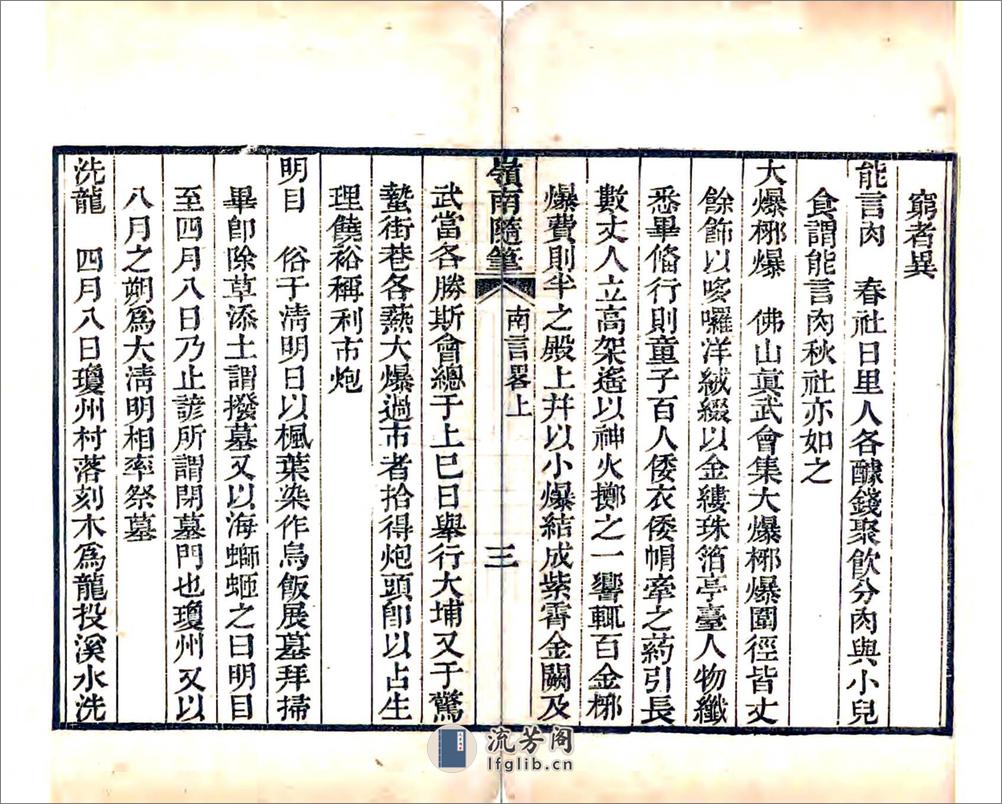 窮者異
能言肉　春社日里人各醵錢聚飲分肉與小兒
食謂能言肉秋社亦如之
大爆梛爆　佛山眞武會集大爆梛爆圍徑皆丈
餘飾以哆囉洋絨綴以金縷珠箔亭臺人物纖
悉畢俻行則童子百人倭衣倭帽牽之葯引長
數丈人立高架遙以神火擲之一響輒百金梛
爆費則半之殿上幷以小爆結成紫霄金闕及
嶺南隨筆
南言畧上
三
武當各勝斯會總于上巳日舉行大埔又于驚
蟄街巷各爇大爆過市者拾得炮頭卽以占生
理饒裕稱利市炮
明目　俗于淸明日以楓葉染作烏飯展墓拜掃
畢卽除草添土謂撥墓又以海螄䖳之曰明目
至四月八日乃止諺所謂閉墓門也瓊州又以
八月之朔爲大淸明相率祭墓
洗龍　四月八日瓊州村落刻木爲龍投溪水洗
流芳阁
lfglib.cn